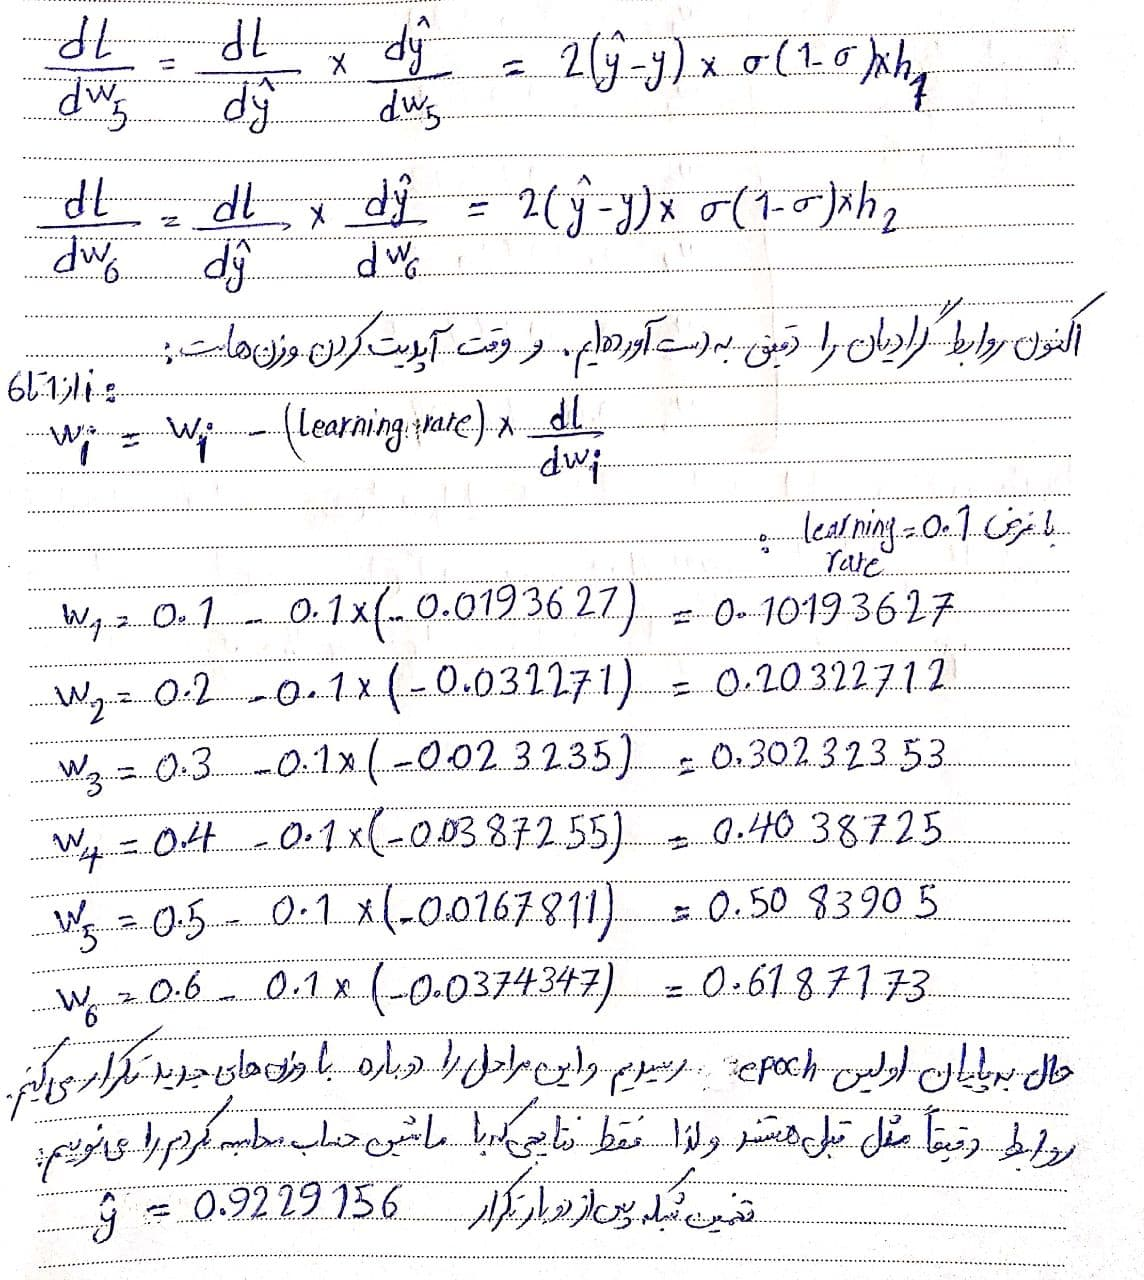 dL/dw5 = dL/dŷ × dŷ/dw5 = 2(ŷ-y) × σ(1-σ)×h1
dL/dw6 = dL/dŷ × dŷ/dw6 = 2(ŷ-y)× σ(1-σ)×h2
اکنون روابط گرادیان را دقیق به دست آورده‌ایم. و وقت آپدیت کردن وزن‌هاست:
i از 1 تا 6:
wi = wi - (learning rate) × dL/dwi
با فرض learning rate = 0.1 :
w1 = 0.1 - 0.1×(-0.0193627) = 0.10193627
w2 = 0.2 - 0.1×(-0.032271) = 0.20322712
w3 = 0.3 - 0.1×(-0.023235) = 0.30232353
w4 = 0.4 - 0.1×(-0.0387255) = 0.4038725
w5 = 0.5 - 0.1×(-0.0167811) = 0.5083905
w6 = 0.6 - 0.1×(-0.0374347) = 0.6187173
حال به پایان اولین epoch رسیدیم و این مراحل را دوباره با وزن‌های جدید تکرار می‌کنیم.
روابط دقیقاً مثل قبل هستند و لذا فقط نتایجی که با ماشین حساب محاسبه کردم را می‌نویسم:
تخمین شبکه پس از دو بار تکرار ŷ = 0.9229156